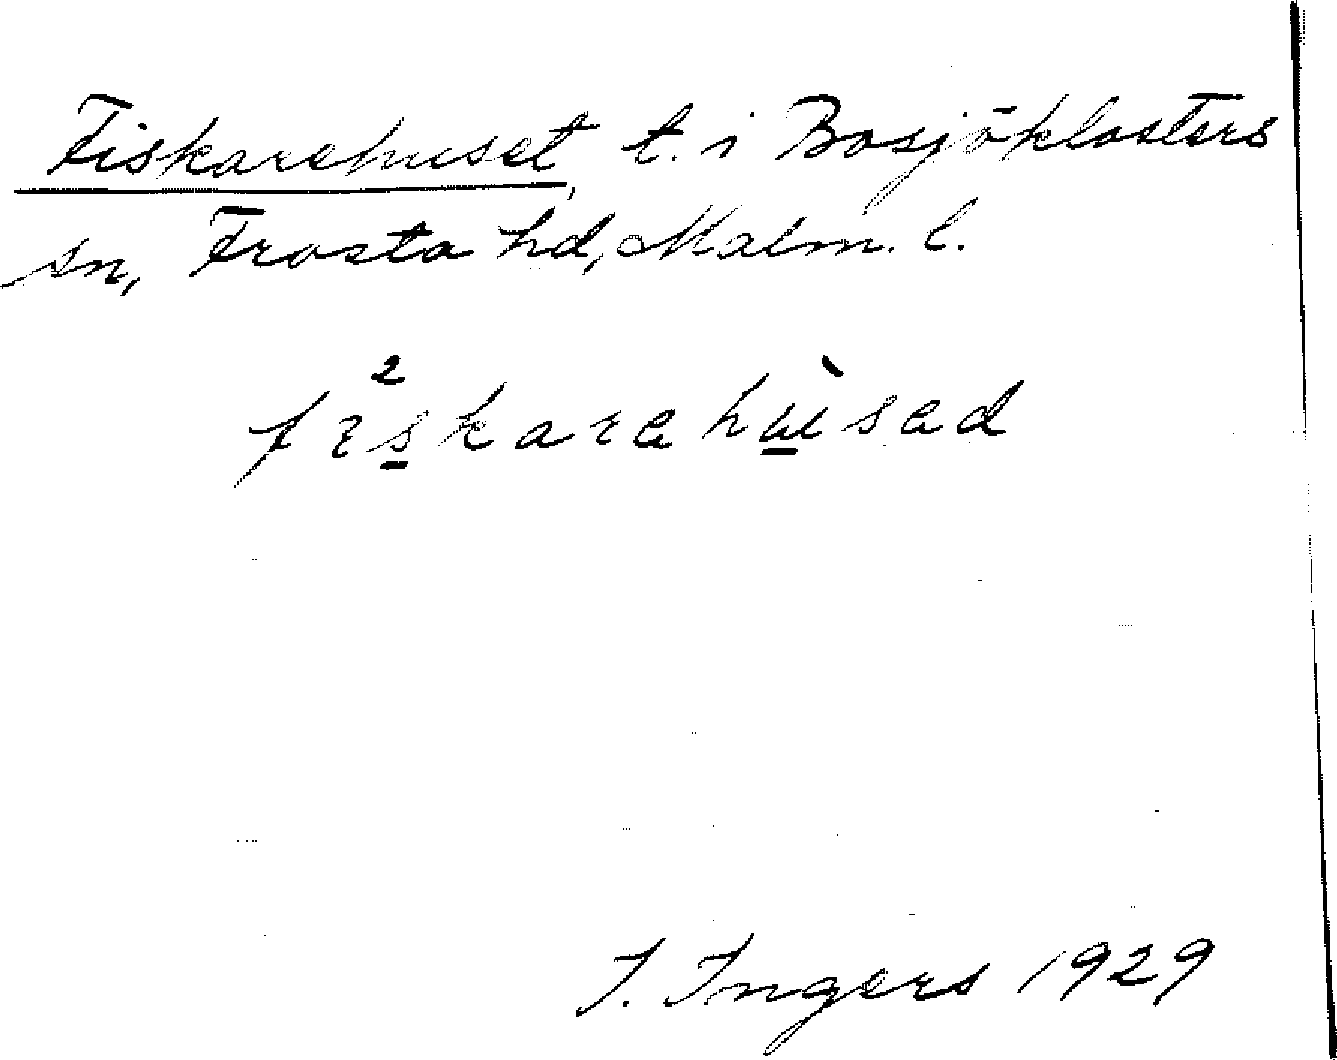 Fiskarehuset, t. i Bosjöklosters
sn, Frosta hd, Malm. l.
I. Ingers 1929